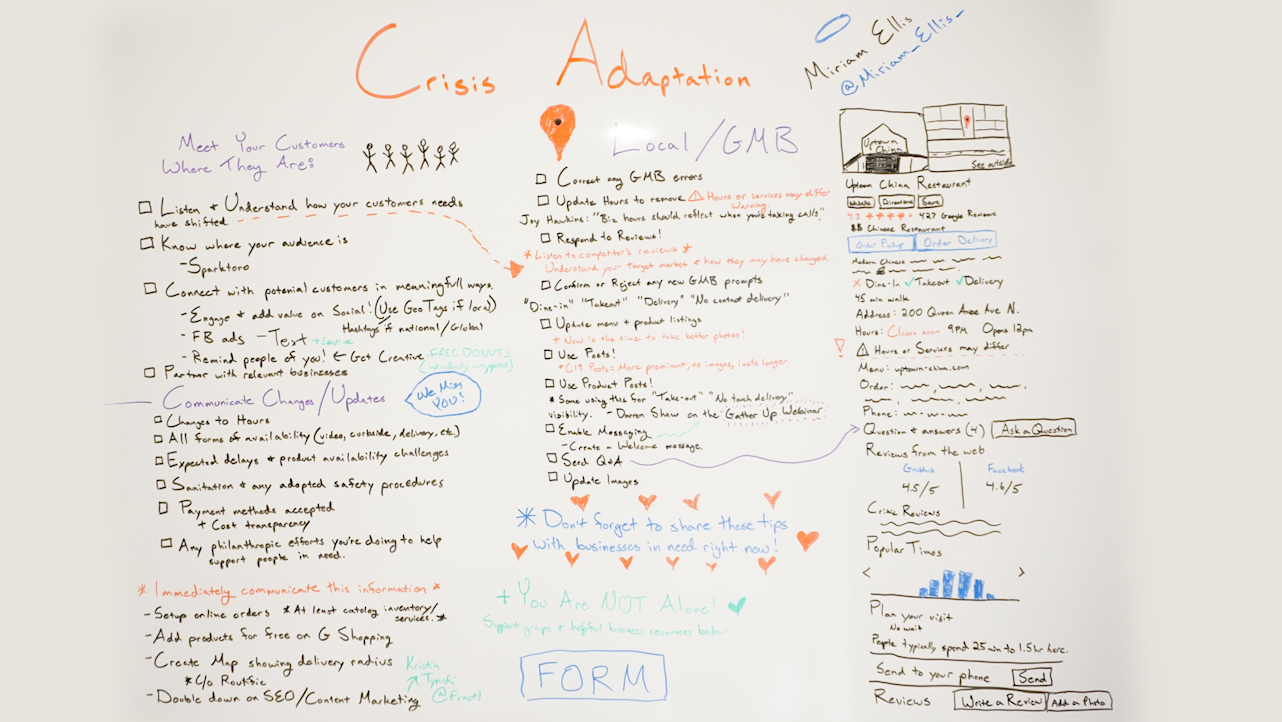 Crisis Adaptation
Miriam Ellis
@Miriam_Ellis_
Meet Your Customers
Where They Are:
Listen & Understand how your customers needs
have shifted.
Know where your audience is
-Sparktoro
Connect with potenial customers in meaningfull ways.
-Engage & add value on Social! (Use GeoTags if local)
Hashtags if national/Global
-FB ads -Text + Creative
-Remind people of you! ← Get Creative FREE DONUTS
(individually wrapped)
Partner with relevant businesses
Communicate Changes/Updates
We Miss
You!
Changes to Hours
All forms of availability (video, curbside, delivery, etc.)
Expected delays & product availability challenges
Sanitation & any adopted safety procedures
Payment methods accepted
+ Cost transparency
Any philanthropic efforts you're doing to help
support people in need.
* Immediately communicate this information *
-Setup online orders *At least catalog inventory/
services.*
-Add products for free on G Shopping
-Create Map showing delivery radius
*C/o Routific
-Double down on SEO/Content Marketing
Kristin
Tynski
@Fractl
Local/GMB
Correct any GMB errors
Update Hours to remove ⚠ Hours or services may differ
warning.
Joy Hawkins: "Biz hours should reflect when you're taking calls"
Respond to Reviews!
* Listen to competitor's reviews *
Understand your target market & how they may have changed.
Confirm or Reject any new GMB prompts
"Dine-in" "Takeout" "Delivery" "No contact delivery"
Update menu & product listings
+ Now is the time to take better photos!
Use Posts!
*C19 Posts: More prominent, no images, lasts longer.
Use Product Posts!
* Some using this for "Take-out" "No touch delivery"
visibility. - Darren Shaw on the Gather Up Webinar
Enable Messaging
-Create a Welcome message.
Send Q&A
Update Images
* Don't forget to share these tips
with businesses in need right now!
+ You Are NOT Alone!
Support groups & helpful business resources below.
FORM
Uptown
China
See outside
Uptown China Restaurant
Website Directions Save
4.3 ★★★★ 427 Google Reviews
$$ Chinese Restaurant
Order Pickup Order Delivery
Modern Chinese
X Dine-In ✓Takeout ✓Delivery
45 min walk
Address: 200 Queen Anne Ave N.
Hours: Closes soon 9PM Opens 12pm
! ⚠ Hours or Services may differ
Menu: uptown-china.com
Order:
Phone:
Question & answers (4) Ask a Question
Reviews from the web
Grubhub Facebook
4.5/5 4.6/5
Critic Reviews
Popular Times
< >
Plan your visit
No wait
People typically spend 25 min to 1.5 hr here.
Send to your phone Send
Reviews Write a Review Add a Photo